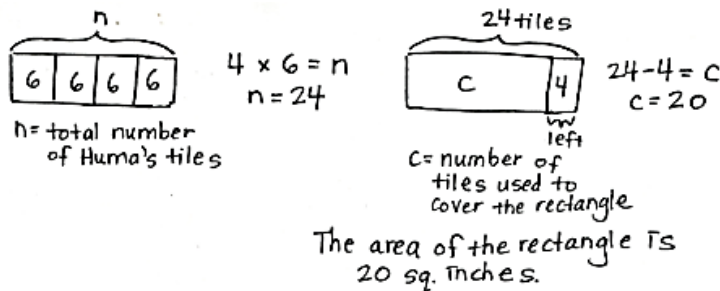 n
6 6 6 6
4 × 6 = n
n = 24
n = total number
of Huma's tiles
24 tiles
c 4
left
24-4 = c
c = 20
c = number of
tiles used to
cover the rectangle
The area of the rectangle is
20 sq. inches.